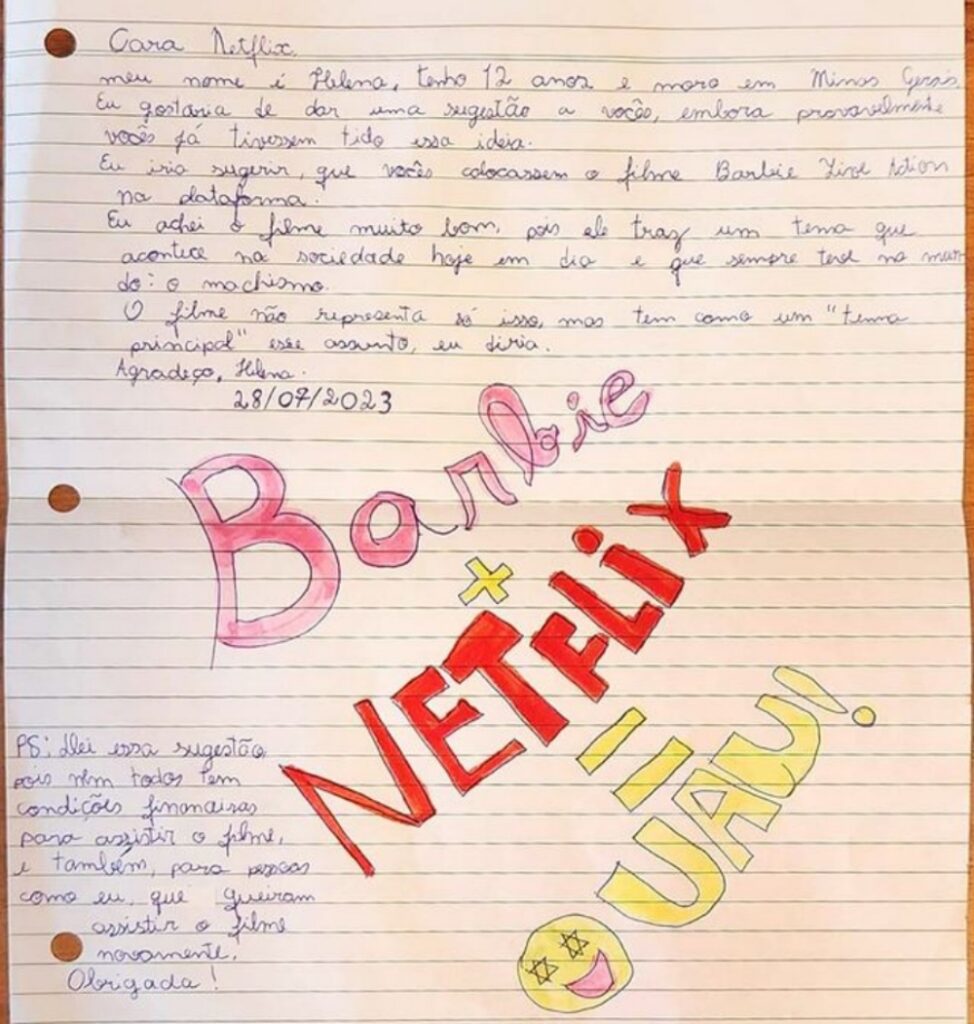 Cara Netflix,
meu nome é Helena, tenho 12 anos e moro em Minas Gerais.
Eu gostaria de dar uma sugestão a vocês, embora provavelmente
vocês já tivessem tido essa ideia.
Eu iria sugerir, que vocês colocassem o filme Barbie Live Action
na plataforma.
Eu achei o filme muito bom, pois ele traz um tema que
acontece na sociedade hoje em dia e que sempre teve no mun-
do: o machismo.
O filme não representa só isso, mas tem como um "tema
principal" esse assunto, eu diria.
Agradeço, Helena.
28/07/2023
Barbie
+
NETFLiX
=
UAU!
PS: Dei essa sugestão,
pois nem todos tem
condições financeiras
para assistir o filme,
e também, para pessoas
como eu, que queiram
assistir o filme
novamente.
Obrigada!